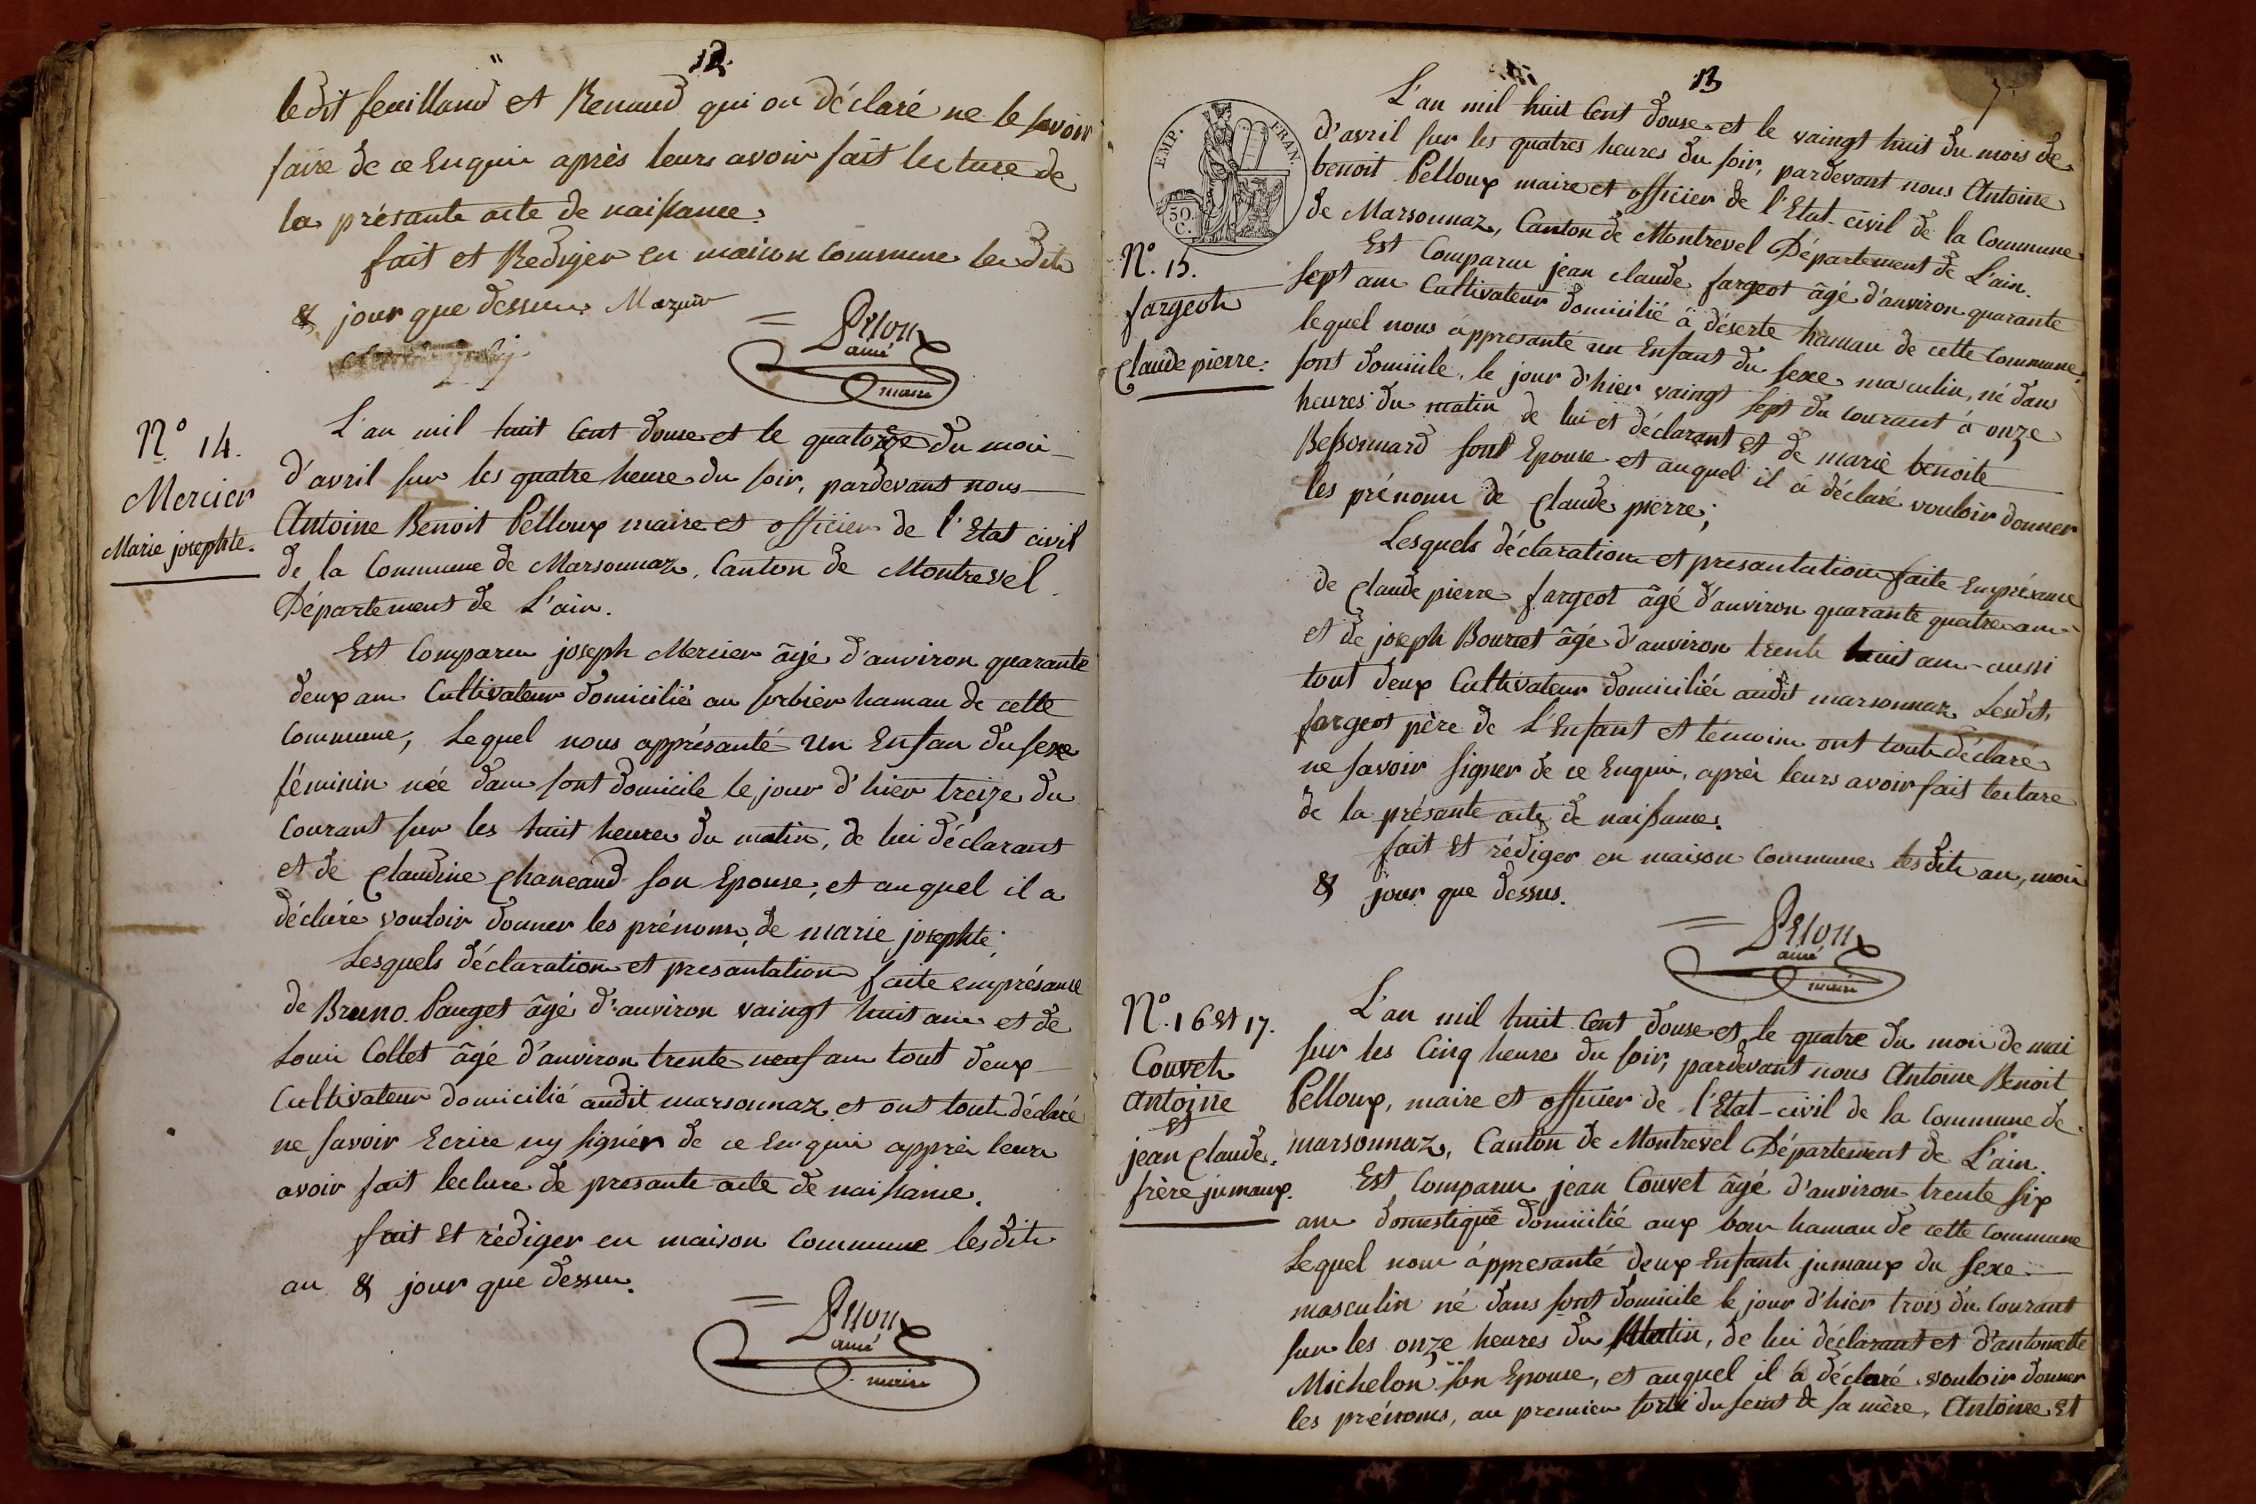 12
ledit feuilland et Renaud qui on déclaré ne le savoir
faire de ce Enquir après leurs avoir fait lecture de
la présante acte de naissance.
fait et Rediger en maison commune les dits
& jour que dessus. Mazuir
Pelloux
ainé
maire
N.° 14.
Mercier
Marie josephte.
L'an mil huit Cent douse et le quatorze du mois
d'avril sur les quatre heure du soir, pardevant nous
Antoine Benoit Pelloux maire et officier de l'Etat civil
de la Commune de Marsonnaz, Canton de Montrevel
Département de L'ain.
Est Comparu joseph Mercier âgé d'anviron quarante
deux ans Cultivateur domicilié au sorbier hamau de cette
Commune, Lequel nous apprésanté un Enfan du sexe
féminin née dans sont domicile le jour d'hier treize du
Courant sur les huit heures du matin, de lui déclarant
et de Claudine Chaneaud son Epouse, et auquel il a
déclaré vouloir donner les prénoms de marie josephte;
Lesquels déclaration et presantation faite en présance
de Bruno Pauget âgé d'anviron vaingt huit ans et de
Louis Collet âgé d'anviron trente neuf ans tout deux
Cultivateur domicilié audit marsonnaz et ont touts déclaré
ne savoir Ecrire ny signér de ce Enquir apprès leurs
avoir fait lecture de presante acte de naissance.
fait Et rédiger en maison Commune lesdits
an & jour que dessus.
Pelloux
ainé
maire
13
7
EMP. FRAN.
50.
C.
L'an mil huit Cent douse et le vaingt huit du mois de
d'avril sur les quatres heures du soir, pardevant nous Antoine
benoit Pelloux maire et officier de l'Etat-civil de la Commune
de Marsonnaz, Canton de Montrevel Département de L'ain.
N.° 15.
fargeot
Claude pierre.
Est Comparu jean claude fargeot âgé d'anviron quarante
sept ans Cultivateur domicilié à déserte hamau de cette Commune,
lequel nous àppresanté un Enfant du sexe masculin, né dans
sont domicile, le jour d'hier vaingt sept du courant à onze
heures du matin de lui et déclarant et de marie benoite
Bessonnard sont Epouse et auquel il à déclaré vouloir donner
les prénoms de Claude pierre;
Lesquels déclaration et presantation faite En présance
de Claude pierre fargeot âgé d'anviron quarante quatre ans
et de joseph Bourcet âgé d'anviron trente huit ans aussi
tout deux Cultivateur domiciliés audit marsonnaz Lesdits
fargeot père de L'Enfant et témoins ont touts déclaré
ne savoir signer de ce Enquir, après leurs avoir fait lecture
de la présante acte de naissance.
fait Et rédiger en maison Commune lesdits an, mois
& jour que dessus.
Pelloux
ainé
maire
N.° 16 Et 17.
Couvet
Antoine
Et
jean Claude.
frère jumaux.
L'an mil huit Cent douse et le quatre du mois de mai
sur les Cinq heures du soir, pardevant nous Antoine Benoit
Pelloux, maire et officier de l'Etat-civil de la Commune de
marsonnaz, Canton de Montrevel Département de L'ain.
Est Comparu jean Couvet âgé d'anviron trente six
ans domestique domicilié aux hamau de cette Commune
Lequel nous àppresanté deux Enfants jumaux du sexe
masculin né dans sont domicile le jour d'hier trois du Courant
sur les onze heures du Matin, de lui déclarant et d'antoinette
Michelon son Epouse, et auquel il à déclaré vouloir donner
les prénoms, au premier sortit du seint de sa mère, Antoine Et